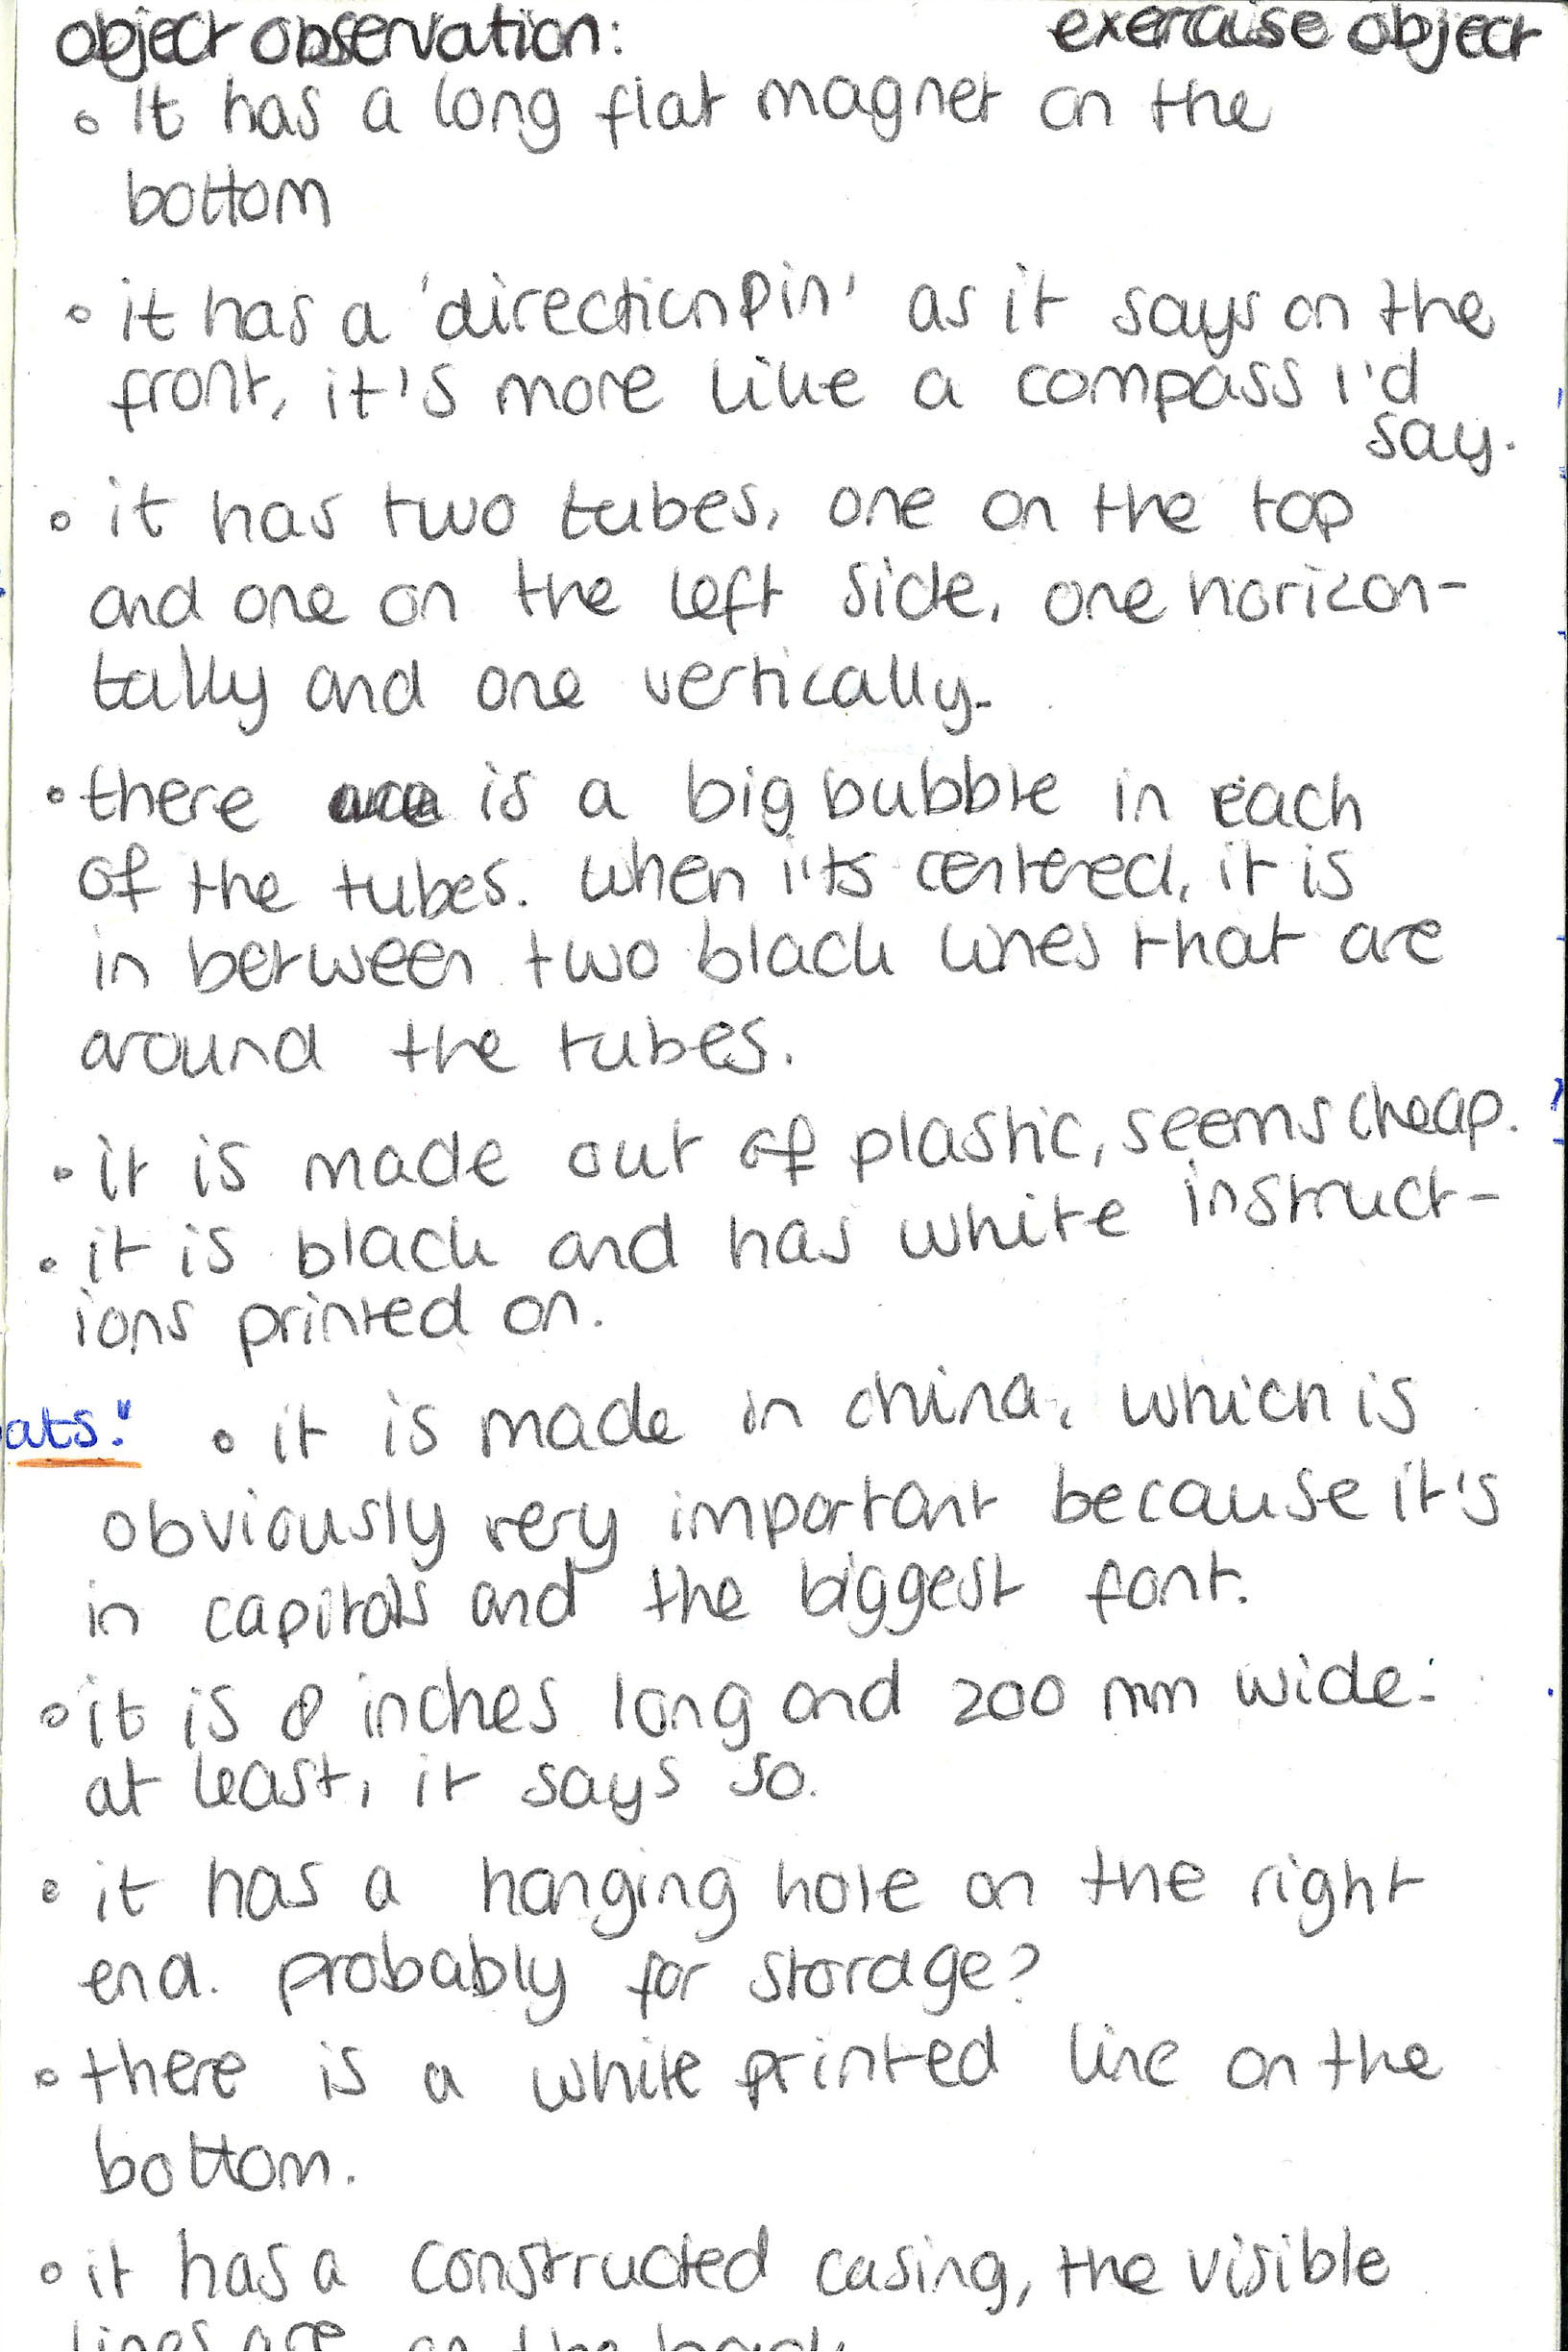 object observation: exercise object
◦ It has a long flat magnet on the
bottom
◦ it has a 'direction pin' as it says on the
front, it's more like a compass I'd
say.
◦ it has two tubes, one on the top
and one on the left side, one horizon-
tally and one vertically.
◦ there is a big bubble in each
of the tubes. when it's centered, it is
in between two black lines that are
around the tubes.
◦ it is made out of plastic, seems cheap.
◦ it is black and has white instruct-
ions printed on.
ats."
◦ it is made in china, which is
obviously very important because it's
in capitals and the biggest font.
◦ it is 8 inches long and 200 mm wide.
at least, it says so.
◦ it has a hanging hole on the right
end. probably for storage?
◦ there is a white printed line on the
bottom.
◦ it has a constructed casing, the visible
lines are on the back